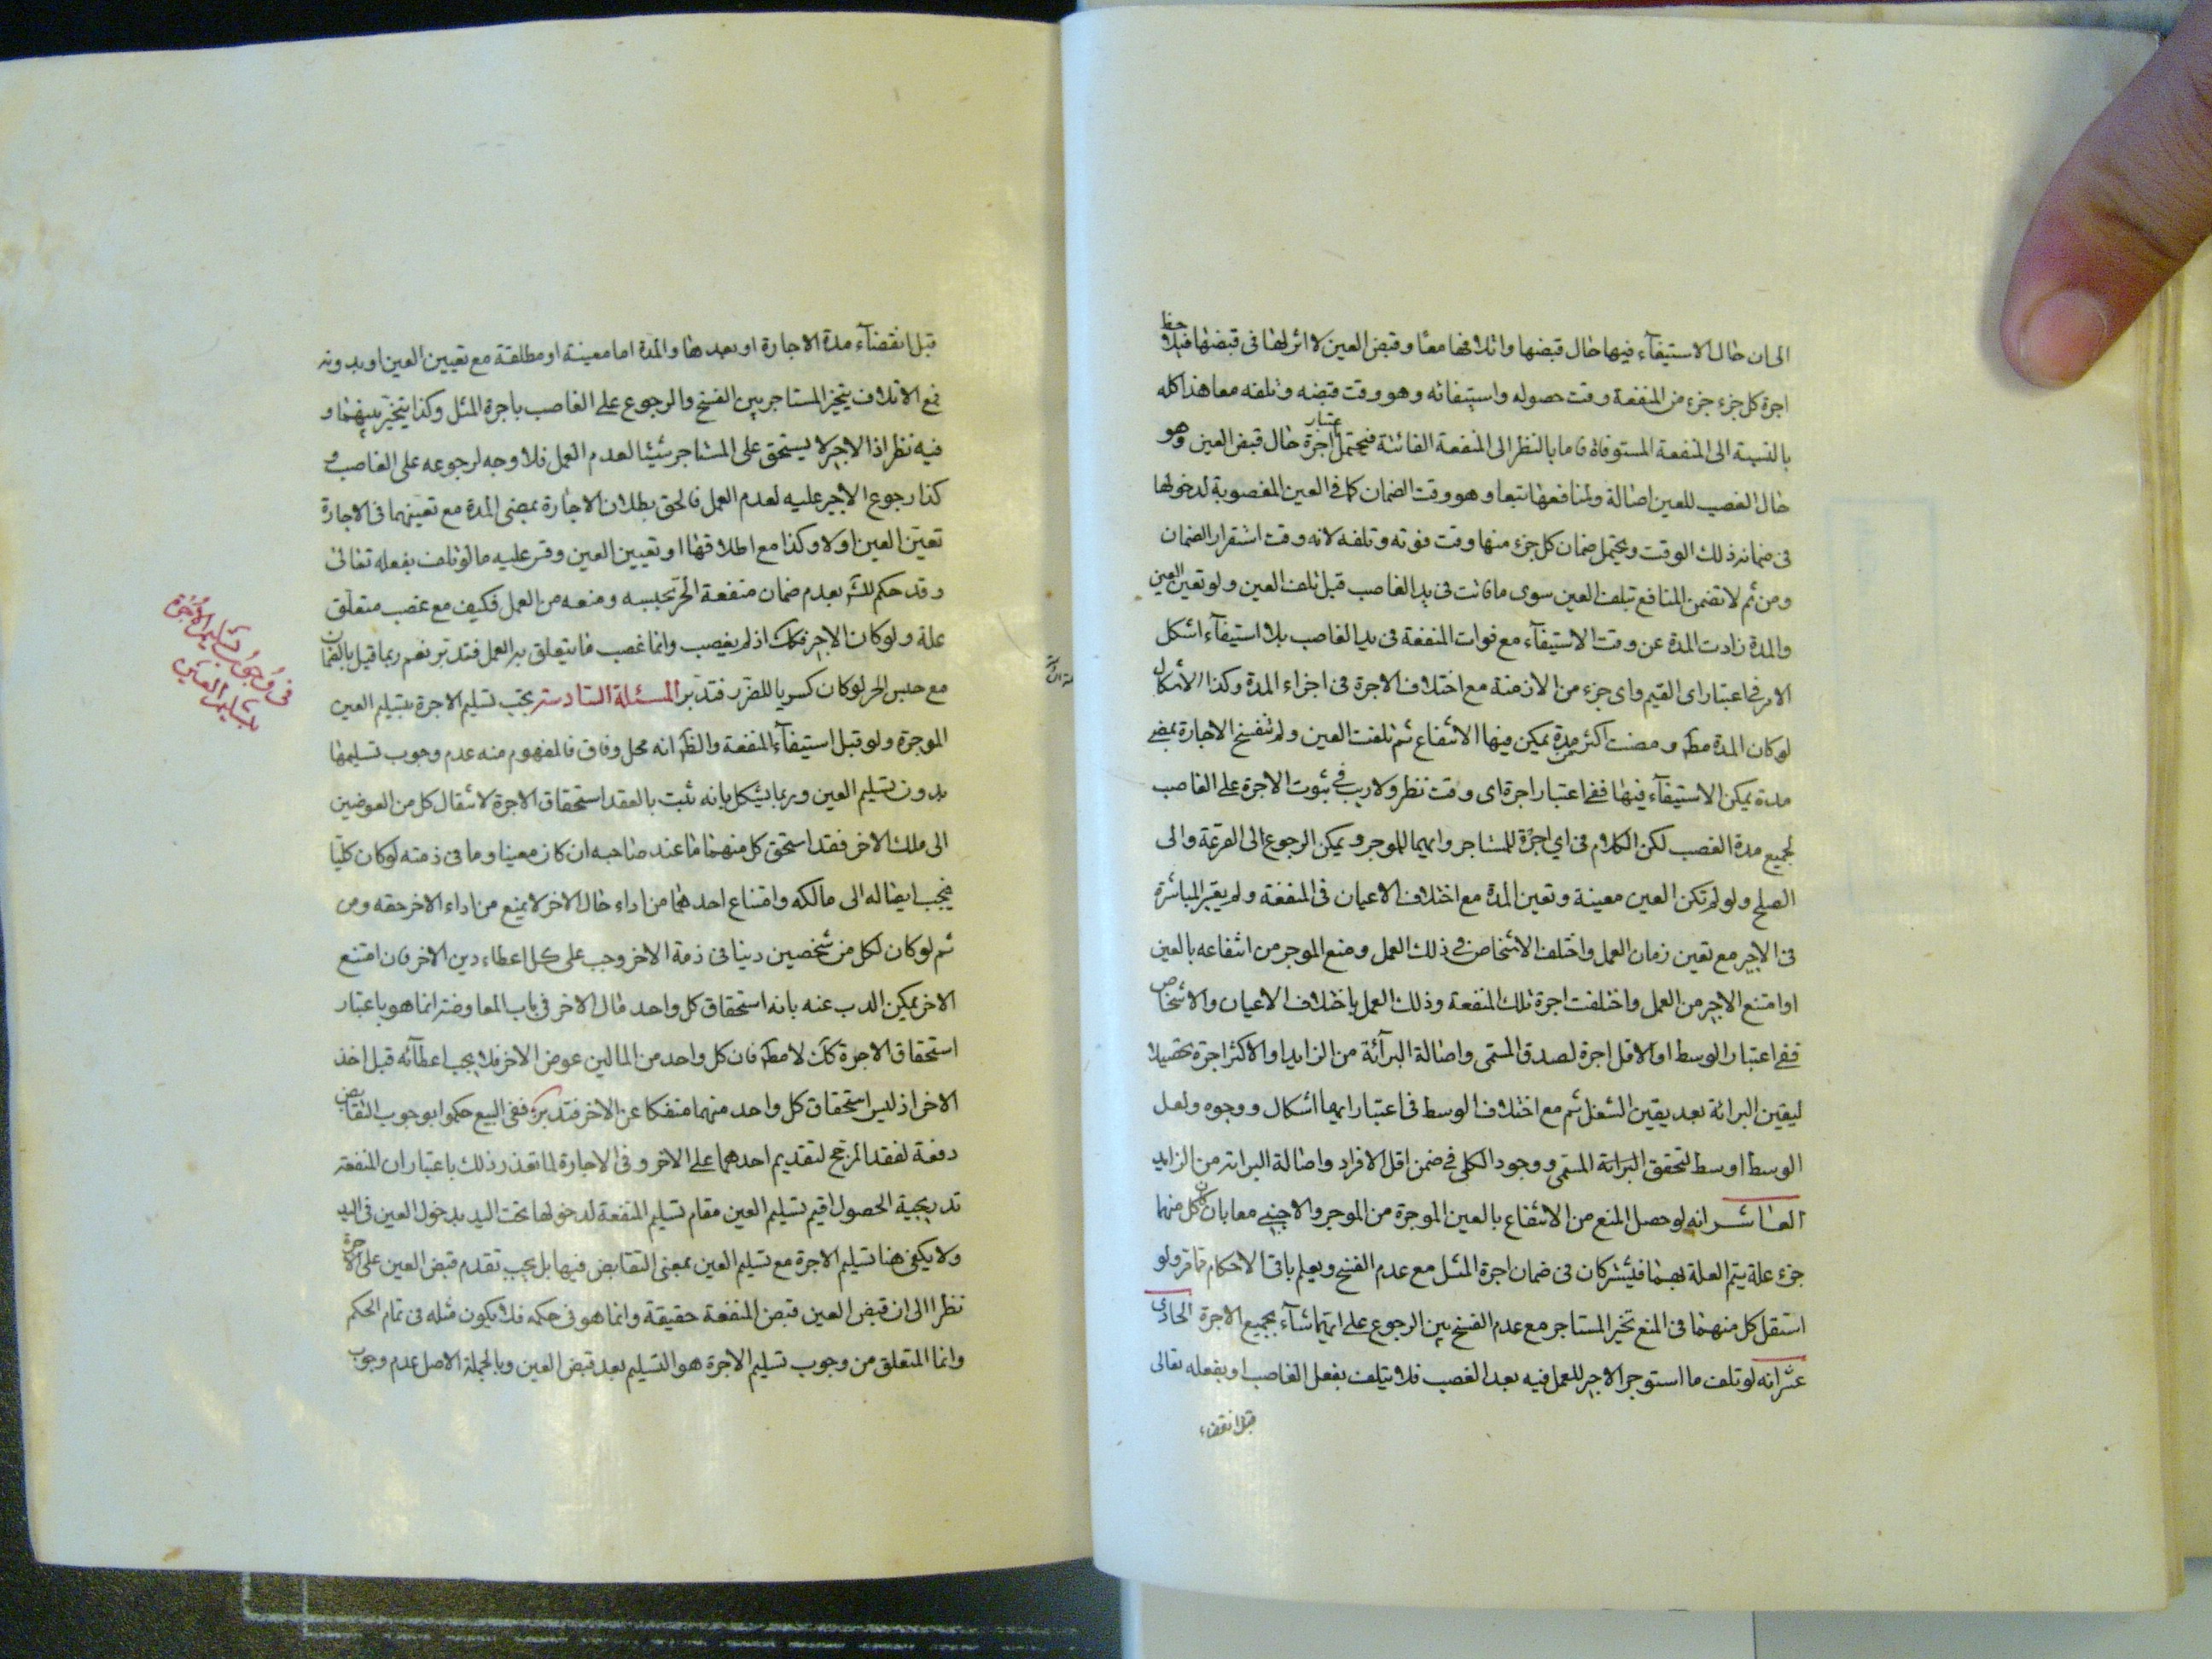 الى ان حال الاستيفآء فيها حال قبضها واتلافها معًا وقبض العين لا اثر لها فى قبضها فيلاحظ
اجرة كل جزء جزء من المنفعة وقت حصوله واستيفائه وهو وقت قبضه وتلفه معا هذا كله
بالنسبة الى المنفعة المستوفاة فاما بالنظر الى المنفعة الفائتة فيحتمل اعتبار اجرة حال قبض العين وهو
حال الغصب للعين اصالة ولمنافعها تبعا وهو وقت الضمان كما فى العين المغصوبة لدخولها
فى ضمانه ذلك الوقت ويحتمل ضمان كل جزء منها وقت فوته وتلفه لانه وقت استقرار الضمان
ومن ثم لا تضمن المنافع بتلف العين سوى ما فاتت فى يد الغاصب قبل تلف العين ولو تعين العين
والمدة زادت المدة عن وقت الاستيفآء مع فوات المنفعة فى يد الغاصب بلا استيفآء اشكل
الامر فى اعتبار اى القيم واى جزء من الازمنة مع اختلاف الاجرة فى اجزاء المدة وكذا الاشكال
لو كان المدة مطه ومضت اكثر مدة يمكن فيها الانتفاع ثم تلفت العين ولم تنفسخ الاجارة بمضى
مدة يمكن الاستيفآء فيها ففى اعتبار اجرة اى وقت نظر ولا ريب فى ثبوت الاجرة على الغاصب
لجميع مدة الغصب لكن الكلام فى اي اجرة للمستاجر وايهما للموجر ويمكن الرجوع الى القرعة والى
الصلح ولو لم تكن العين معينة وتعين المدة مع اختلاف الاعيان فى المنفعة ولم يعتبر المباشرة
فى الاجير مع تعين زمان العمل واختلف الاشخاص فى ذلك العمل ومنع الموجر من انتفاعه بالعين
او امتنع الاجير من العمل واختلفت اجرة تلك المنفعة وذلك العمل باختلاف الاعيان والاشخاص
ففى اعتبار الوسط او الاقل اجرة لصدق المسمى واصالة البرآئة من الزايد او الاكثر اجرة تحصيلا
ليقين البرائة بعد يقين الشغل ثم مع اختلاف الوسط فى اعتبار ايهما اشكال ووجوه ولعل
الوسط اوسط لتحقق البرائة المسمى ووجود الكلى فى ضمن اقل الافراد واصالة البرائة من الزايد
العاشر انه لو حصل المنع من الانتفاع بالعين الموجرة من الموجر والاجنبى معا بان كان كل منهما
جزء علة يتم العلة بهما فيشتركان فى ضمان اجرة المثل مع عدم الفسخ ويعلم باقى الاحكام مما مر ولو
استقل كل منهما فى المنع تخير المستاجر مع عدم الفسخ بين الرجوع على ايهما شآء بجميع الاجرة الحادى
عشر انه لو تلف ما استوجر الاجير للعمل فيه بعد الغصب فلا يتلف بفعل الغاصب او بفعله تعالى
قبل انقضاء
قبل انقضآء مدة الاجارة او بعدها والمدة اما معينة او مطلقة مع تعيين العين او بدونه
فمع الاتلاف يتخير المستاجر بين الفسخ والرجوع على الغاصب باجرة المثل وكذا يتخير بينهما و
فيه نظر اذ الاجير لا يستحق على المستاجر شيئا لعدم العمل فلا وجه لرجوعه على الغاصب و
كذا رجوع الاجير عليه لعدم العمل فالحق بطلان الاجارة بمضى المدة مع تعينهما فى الاجارة
تعين العين اولا وكذا مع اطلاقها او تعيين العين وقس عليه ما لو تلف بفعله تعالى
وقد حكم لك بعدم ضمان منفعة الحر بحبسه ومنعه من العمل فكيف مع غصب متعلق
عمله ولو كان الاجير فكك اذ لم يغصب وانما غصب ما يتعلق به العمل فتدبر نعم ربما قيل بالضمان
مع حبس الحر لو كان كسوبا للضرر فتدبر المسئلة السادسة يجب تسليم الاجرة بتسليم العين
الموجرة ولو قبل استيفآء المنفعة والظه انه محل وفاق فالمفهوم منه عدم وجوب تسليمها
بدون تسليم العين وربما يشكل بانه ثبت بالعقد استحقاق الاجرة لانتقال كل من العوضين
الى ملك الاخر فقد استحق كل منهما ما عند صاحبه ان كان معينا وما فى ذمته لو كان كليّا
فيجب ايصاله الى مالكه وامتناع احدهما من اداء حال الاخر لا يمنع من اداء الاخر حقه ومن
ثم لو كان لكل من شخصين دينا فى ذمة الاخر وجب على كل اعطاء دين الاخر فان امتنع
الاخر يمكن الذب عنه بانه استحقاق كل واحد مال الاخر فى باب المعاوضة انما هو باعتبار
استحقاق الاجرة كك لا مطه فان كل واحد من المالين عوض الاخر فلا يجب اعطآئه قبل اخذ
الاخر اذ ليس استحقاق كل واحد منهما منفكا عن الاخر فتدبر ففى البيع حكموا بوجوب التقابض
دفعة لفقد المرجح لتقديم احدهما على الاخر وفى الاجارة لما تعذر ذلك باعتبار ان المنفعة
تدريجية الحصول اقيم تسليم العين مقام تسليم المنفعة لدخولها تحت اليد بدخول العين فى اليد
ولا يكفى هنا تسليم الاجرة مع تسليم العين بمعنى التقابض فيها بل يجب تقدم قبض العين على الاجرة
نظرا الى ان قبض العين قبض المنفعة حقيقة وانما هو فى حكمه فلا يكون مثله فى تمام الحكم
وانما المتعلق من وجوب تسليم الاجرة هو التسليم بعد قبض العين وبالجملة الاصل عدم وجوب
فى وُجوُب تسَليم الاُجُرَة
بتَسَليم العَيَن